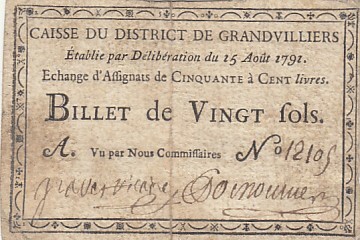 CAISSE DU DISTRICT DE GRANDVILLIERS
Établie par Délibération du 15 Août 1791.
Echange d'Assignats de CINQUANTE à CENT livres.
BILLET de VINGT sols.
A. Vu par Nous Commissaires No 12105